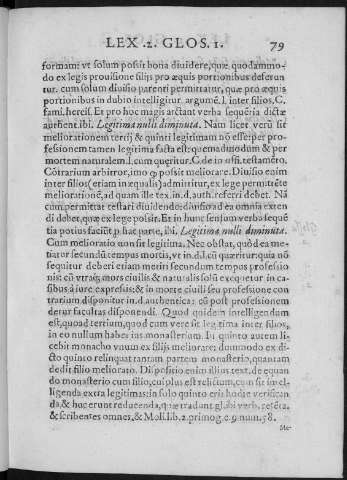 LEX .2. GLOS. 1. 79
formam: vt solum possit bona diuidere, quæ quodammo-
do ex legis prouisione filijs pro æquis portionibus deferun
tur. cum solum diuisio parenti permittatur, quæ pro æquis
portionibus in dubio intelligitur. argumē. l. inter filios, C.
fami. hercis. Et pro hoc magis arctant verba sequētia dictæ
authent. ibi. Legitima nulli diminuta. Nam licet verū sit
meliorationem tertij & quinti legitimati nō esse per pro-
fessionem tamen legitima facta est: quemadmodum & per
mortem naturalem. l. cum quæritur. C. de in offi. testamēto.
Cōtrarium arbitror, imo q possit meliorare. Diuisio enim
inter filios (etiam inæqualis) admittitur, ex lege permittēte
melioratione, ad quam ille tex. in. d. auth. referri debet. Nā
cum permittat testari diuidendo: diuisio ad ea omnia exten
di debet, quæ ex lege possit. Et in hunc sensum verba sequē
tia potius faciūt p hac parte, ibi. Legitima nulli diminuta.
Cum melioratio non sit legitima. Nec obstat, quòd ea me-
tiatur secundū tempus mortis, vt in. d. l. cū quæritur: quia nō
sequitur deberi etiam metiri secundum tempus professio
nis: cū vtraq; mors ciuilis & naturalis solū exæquetur in ca-
sibus à iure expressis: & in morte ciuili seu professione con
trarium disponitur in. d. authentica: cū post professionem
detur facultas disponendi. Quod quidem intelligendum
est, quoad tertium, quod cum vere sit legitima inter filios,
in eo nullum habet ius monasterium. In quinto autem li-
cebit monacho vnum ex filijs meliorare: dummodo ex di-
cto quinto relinquat tantam partem monasterio, quantam
dedit filio meliorato. Dispositio enim illius text. de equan
do monasterio cum filio, cui plus est relictum, cum sit intel-
ligenda extra legitimas: in solo quinto erit hodie verifican
da, & hoc erunt reducenda, quæ tradunt gl. ibi verb. retēta.
& scribentes omnes, & Moli. lib. 2. primog. c. 9. num. 58.
Me-